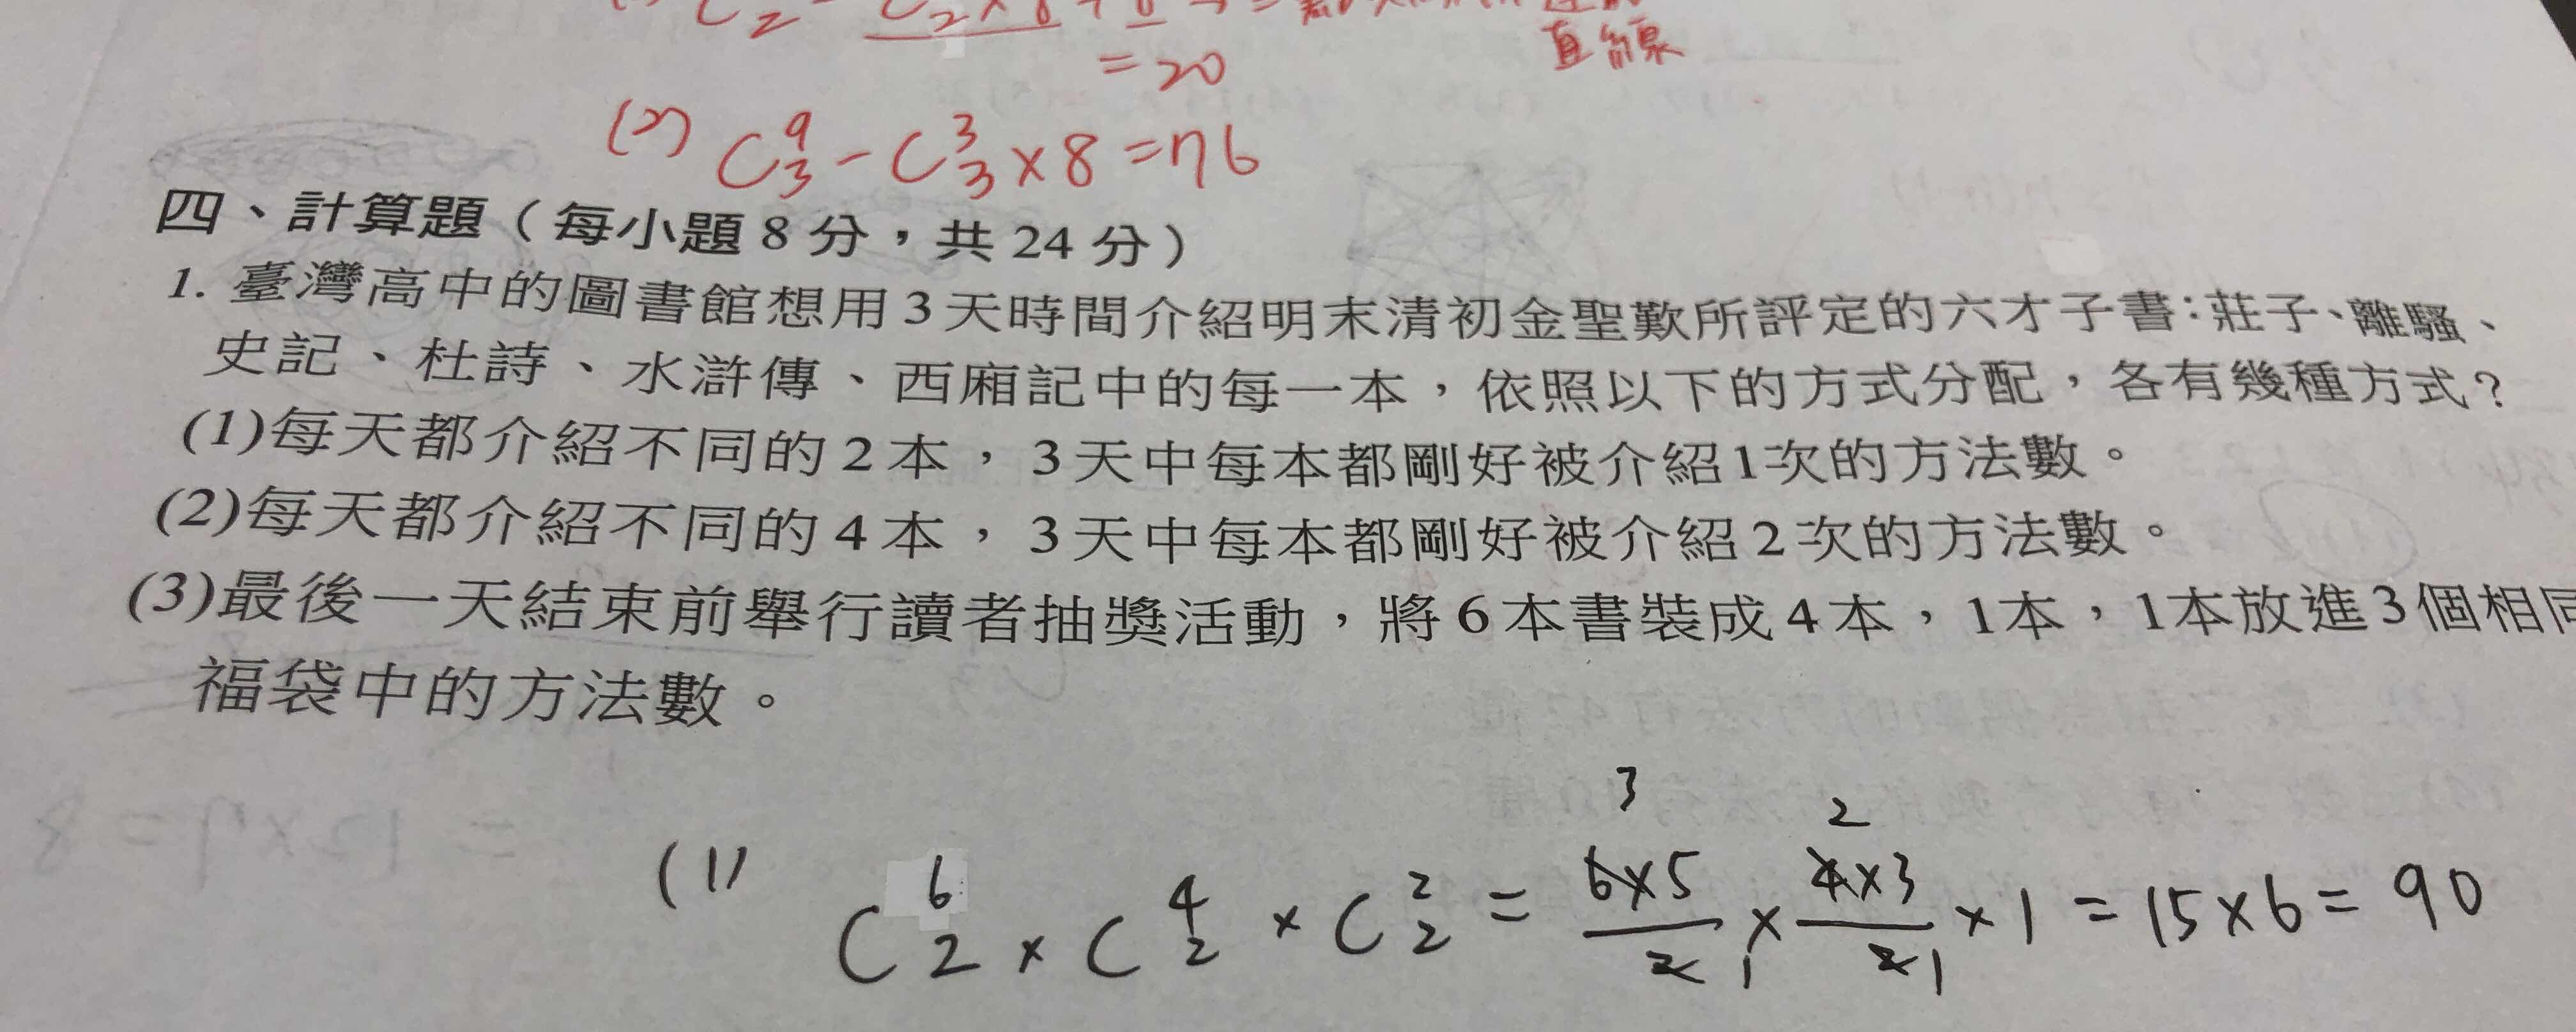 = 20
直線
(2) C⁹₃ − C³₃ × 8 = 76
四、計算題（每小題 8 分，共 24 分）
1. 臺灣高中的圖書館想用 3 天時間介紹明末清初金聖歎所評定的六才子書：莊子、離騷、
史記、杜詩、水滸傳、西廂記中的每一本，依照以下的方式分配，各有幾種方式？
(1)每天都介紹不同的 2 本，3 天中每本都剛好被介紹 1 次的方法數。
(2)每天都介紹不同的 4 本，3 天中每本都剛好被介紹 2 次的方法數。
(3)最後一天結束前舉行讀者抽獎活動，將 6 本書裝成 4 本，1 本，1 本放進 3 個相同
福袋中的方法數。
3 2
(1) C⁶₂ × C⁴₂ × C²₂ = 6×5/2 × 4×3/2 × 1 = 15×6 = 90
1 1